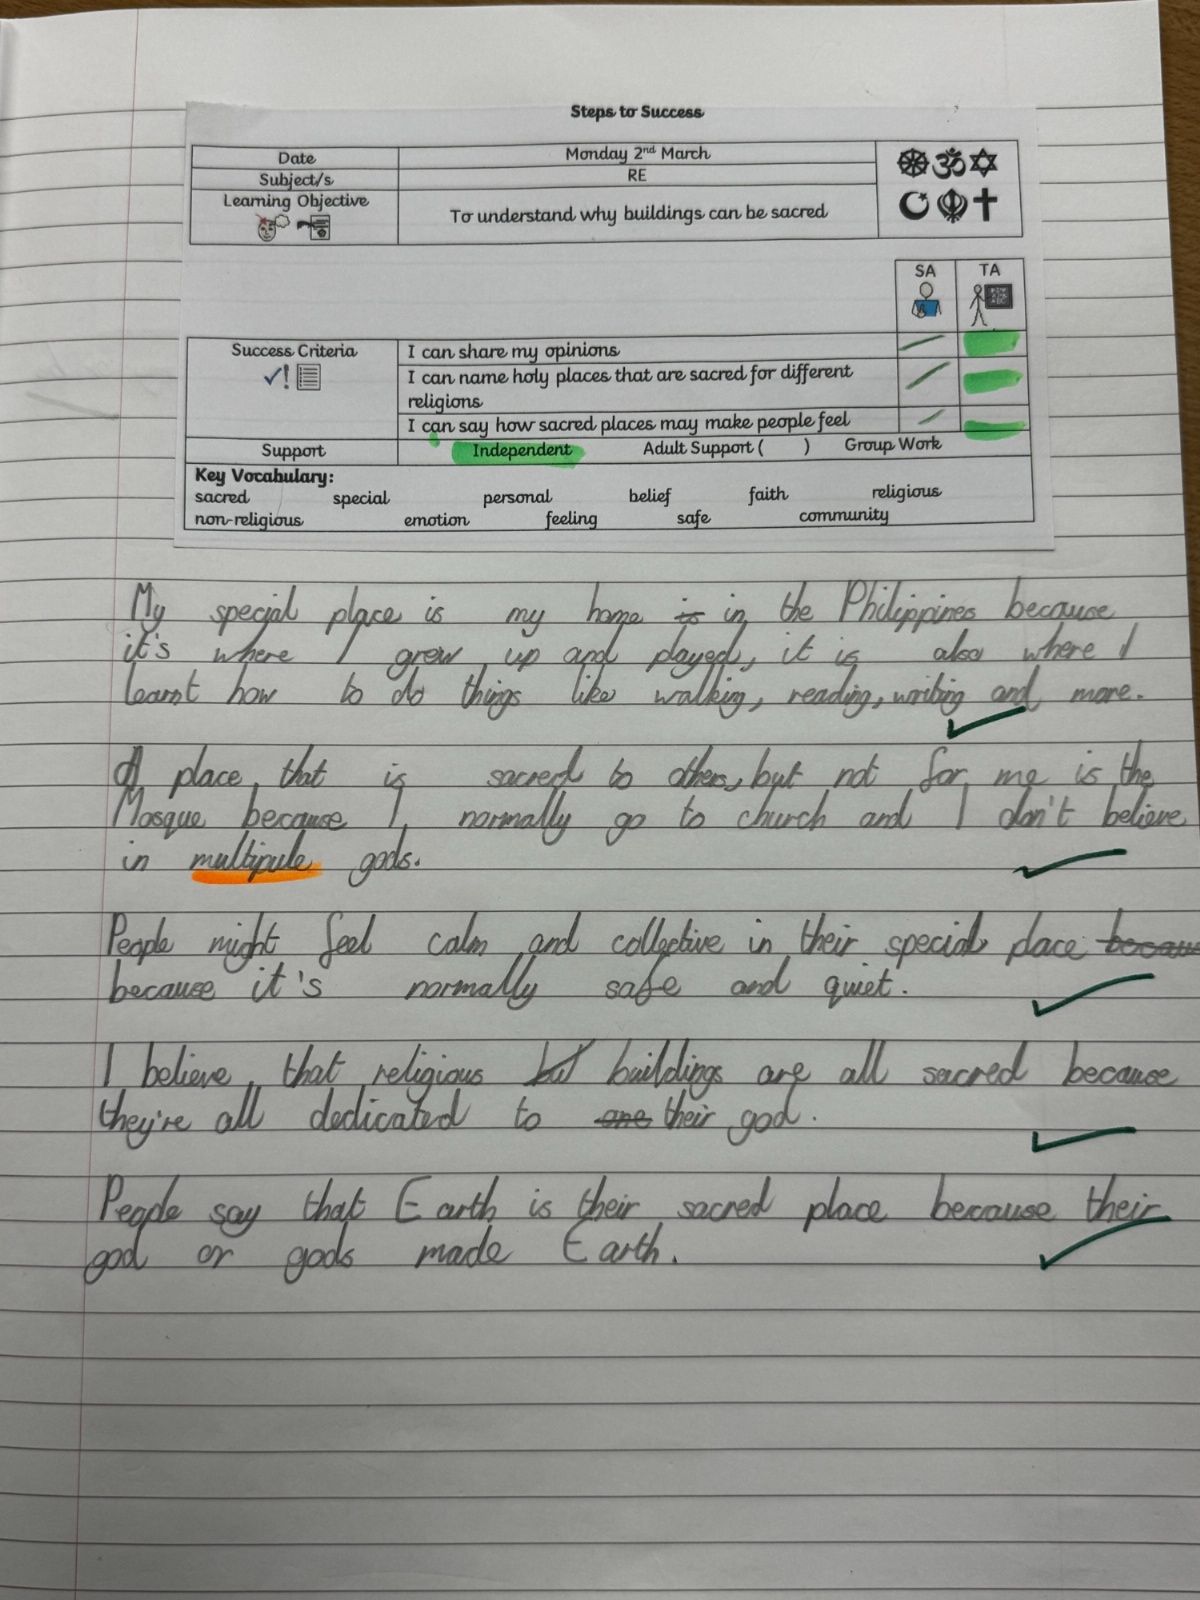 Steps to Success
Date Monday 2nd March
Subject/s RE
Learning Objective To understand why buildings can be sacred
SA TA
Success Criteria I can share my opinions
I can name holy places that are sacred for different
religions
I can say how sacred places may make people feel
Support Independent Adult Support ( ) Group Work
Key Vocabulary:
sacred special personal belief faith religious
non-religious emotion feeling safe community
My special place is my home is in the Philippines because
it's where I grew up and played, it is also where I
learnt how to do things like walking, reading, writing and more.
A place that is sacred to others, but not for me is the
Mosque because I normally go to church and I don't believe
in multipule gods.
People might feel calm and collective in their special place becau
because it's normally safe and quiet.
I believe that religious but buildings are all sacred because
they're all dedicated to one their god.
People say that Earth is their sacred place because their
god or gods made Earth.